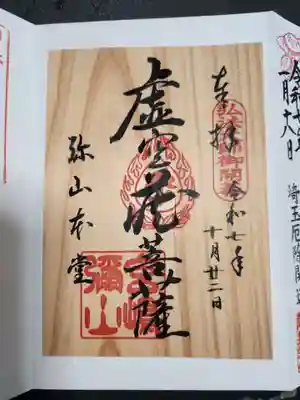 奉拝
令和七年
十月廿二日
弘法大師御開基
虚空蔵菩薩
弥山本堂
宮島
彌山
一月十八日
埼玉厄除開